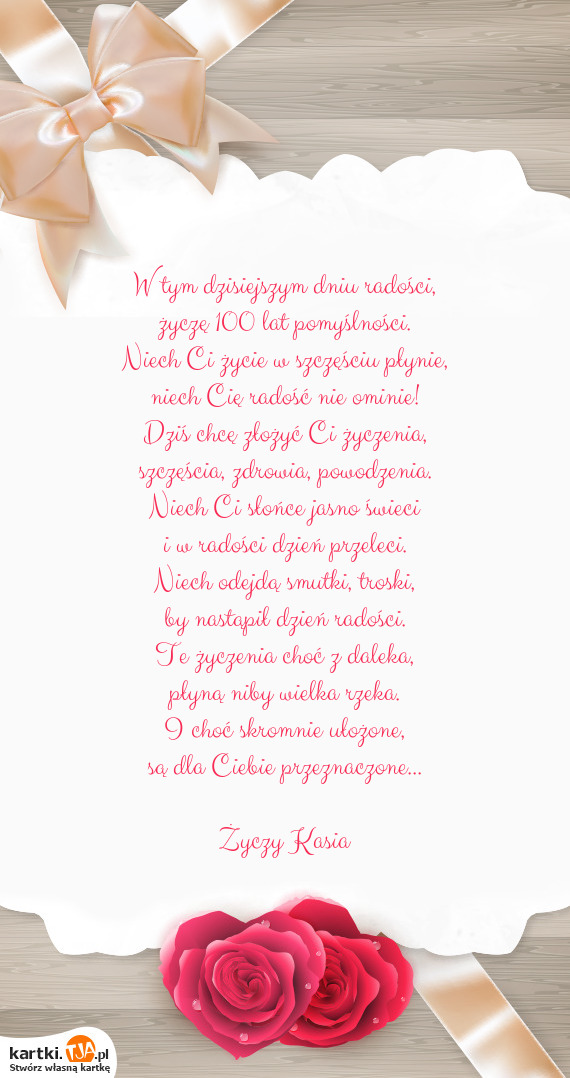 W tym dzisiejszym dniu radości,
życzę 100 lat pomyślności.
Niech Ci życie w szczęściu płynie,
niech Cię radość nie ominie!
Dziś chcę złożyć Ci życzenia,
szczęścia, zdrowia, powodzenia.
Niech Ci słońce jasno świeci
i w radości dzień przeleci.
Niech odejdą smutki, troski,
by nastąpił dzień radości.
Te życzenia choć z daleka,
płyną niby wielka rzeka.
I choć skromnie ułożone,
są dla Ciebie przeznaczone...
Życzy Kasia
kartki.TJA.pl
Stwórz własną kartkę